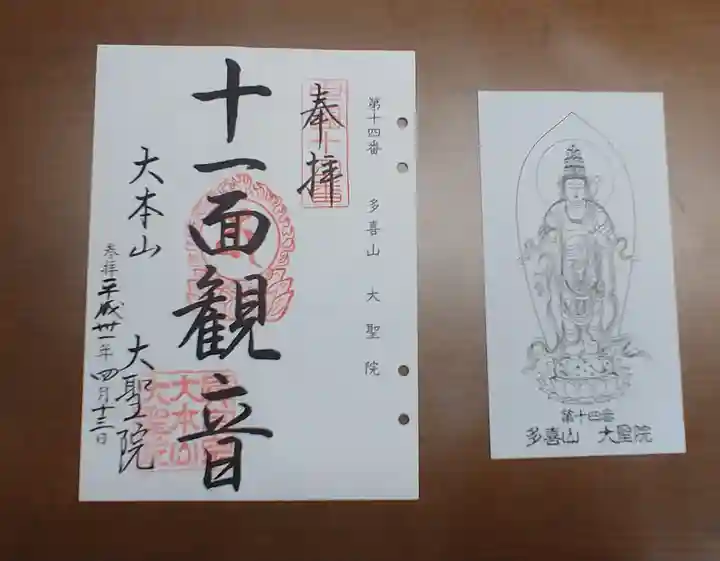 第十四番　多喜山　大聖院
奉拝
十一面観音
大本山　大聖院
参拝平成卅一年四月十三日
第十四番
多喜山　大聖院